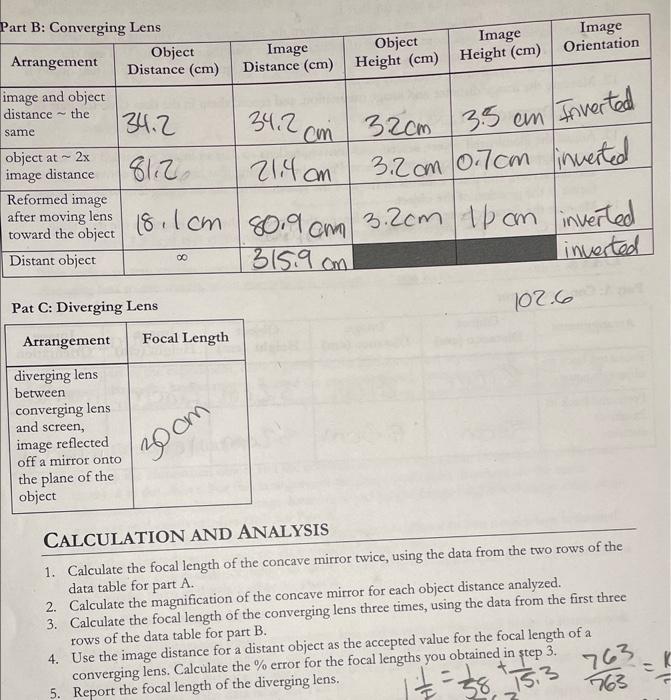 Part B: Converging Lens
Arrangement Object Distance (cm) Image Distance (cm) Object Height (cm) Image Height (cm) Image Orientation
image and object distance ~ the same 34.2 34.2 cm 32cm 3.5 cm Inverted
object at ~ 2x image distance 81.2 21.4 cm 3.2 cm 0.7cm inverted
Reformed image after moving lens toward the object 18.1cm 80.9 cm 3.2cm cm inverted
Distant object ∞ 315.9 cm inverted
102.6
Pat C: Diverging Lens
Arrangement Focal Length
diverging lens
between
converging lens
and screen,
image reflected
off a mirror onto
the plane of the
object
cm
CALCULATION AND ANALYSIS
1. Calculate the focal length of the concave mirror twice, using the data from the two rows of the
data table for part A.
2. Calculate the magnification of the concave mirror for each object distance analyzed.
3. Calculate the focal length of the converging lens three times, using the data from the first three
rows of the data table for part B.
4. Use the image distance for a distant object as the accepted value for the focal length of a
converging lens. Calculate the % error for the focal lengths you obtained in step 3.
5. Report the focal length of the diverging lens.
15.3
763
763